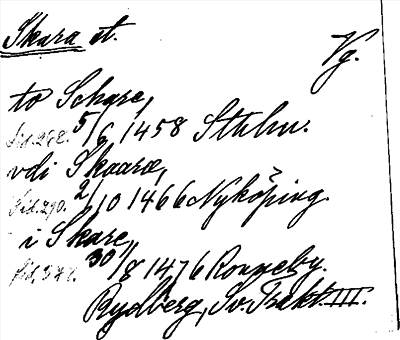 Skara st.
Vg.
to Schare,
Sid. 262. 5/6 1458 Sthlm.
vdi Skaaræ,
Sid. 290. 2/10 1466 Nyköping.
i Skare,
Sid. 372. 30/8 1476 Ronneby.
Rydberg, Sv. Trakt. III.